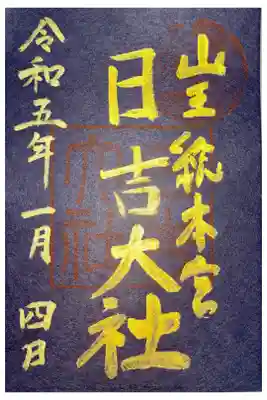 山王総本宮
日吉大社
令和五年一月四日